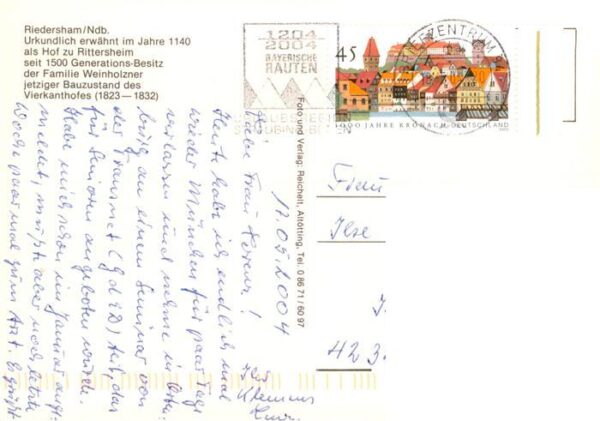 Riedersham/Ndb.
Urkundlich erwähnt im Jahre 1140
als Hof zu Rittersheim
seit 1500 Generations-Besitz
der Familie Weinholzner
jetziger Bauzustand des
Vierkanthofes (1823—1832)
1204
2004
BAYERISCHE
RAUTEN
BRIEFZENTRUM
45
1000 JAHRE KRONACH DEUTSCHLAND
Foto und Verlag: Reichelt, Altötting, Tel. 0 86 71 / 60 97
17.05.2004
Liebe Frau
Heute habe ich endlich mal
wieder München für paar Tage
verlassen und nehme in
an einem Seminar von
der Transnet (GdED) teil, das
für Senioren angeboten wurde.
Habe mich schon im Januar ange-
meldet, mußte aber noch letzte
Woche paar mal zum Arzt. Es grüßt
Klemens
Frau
Ilse
J.
423.